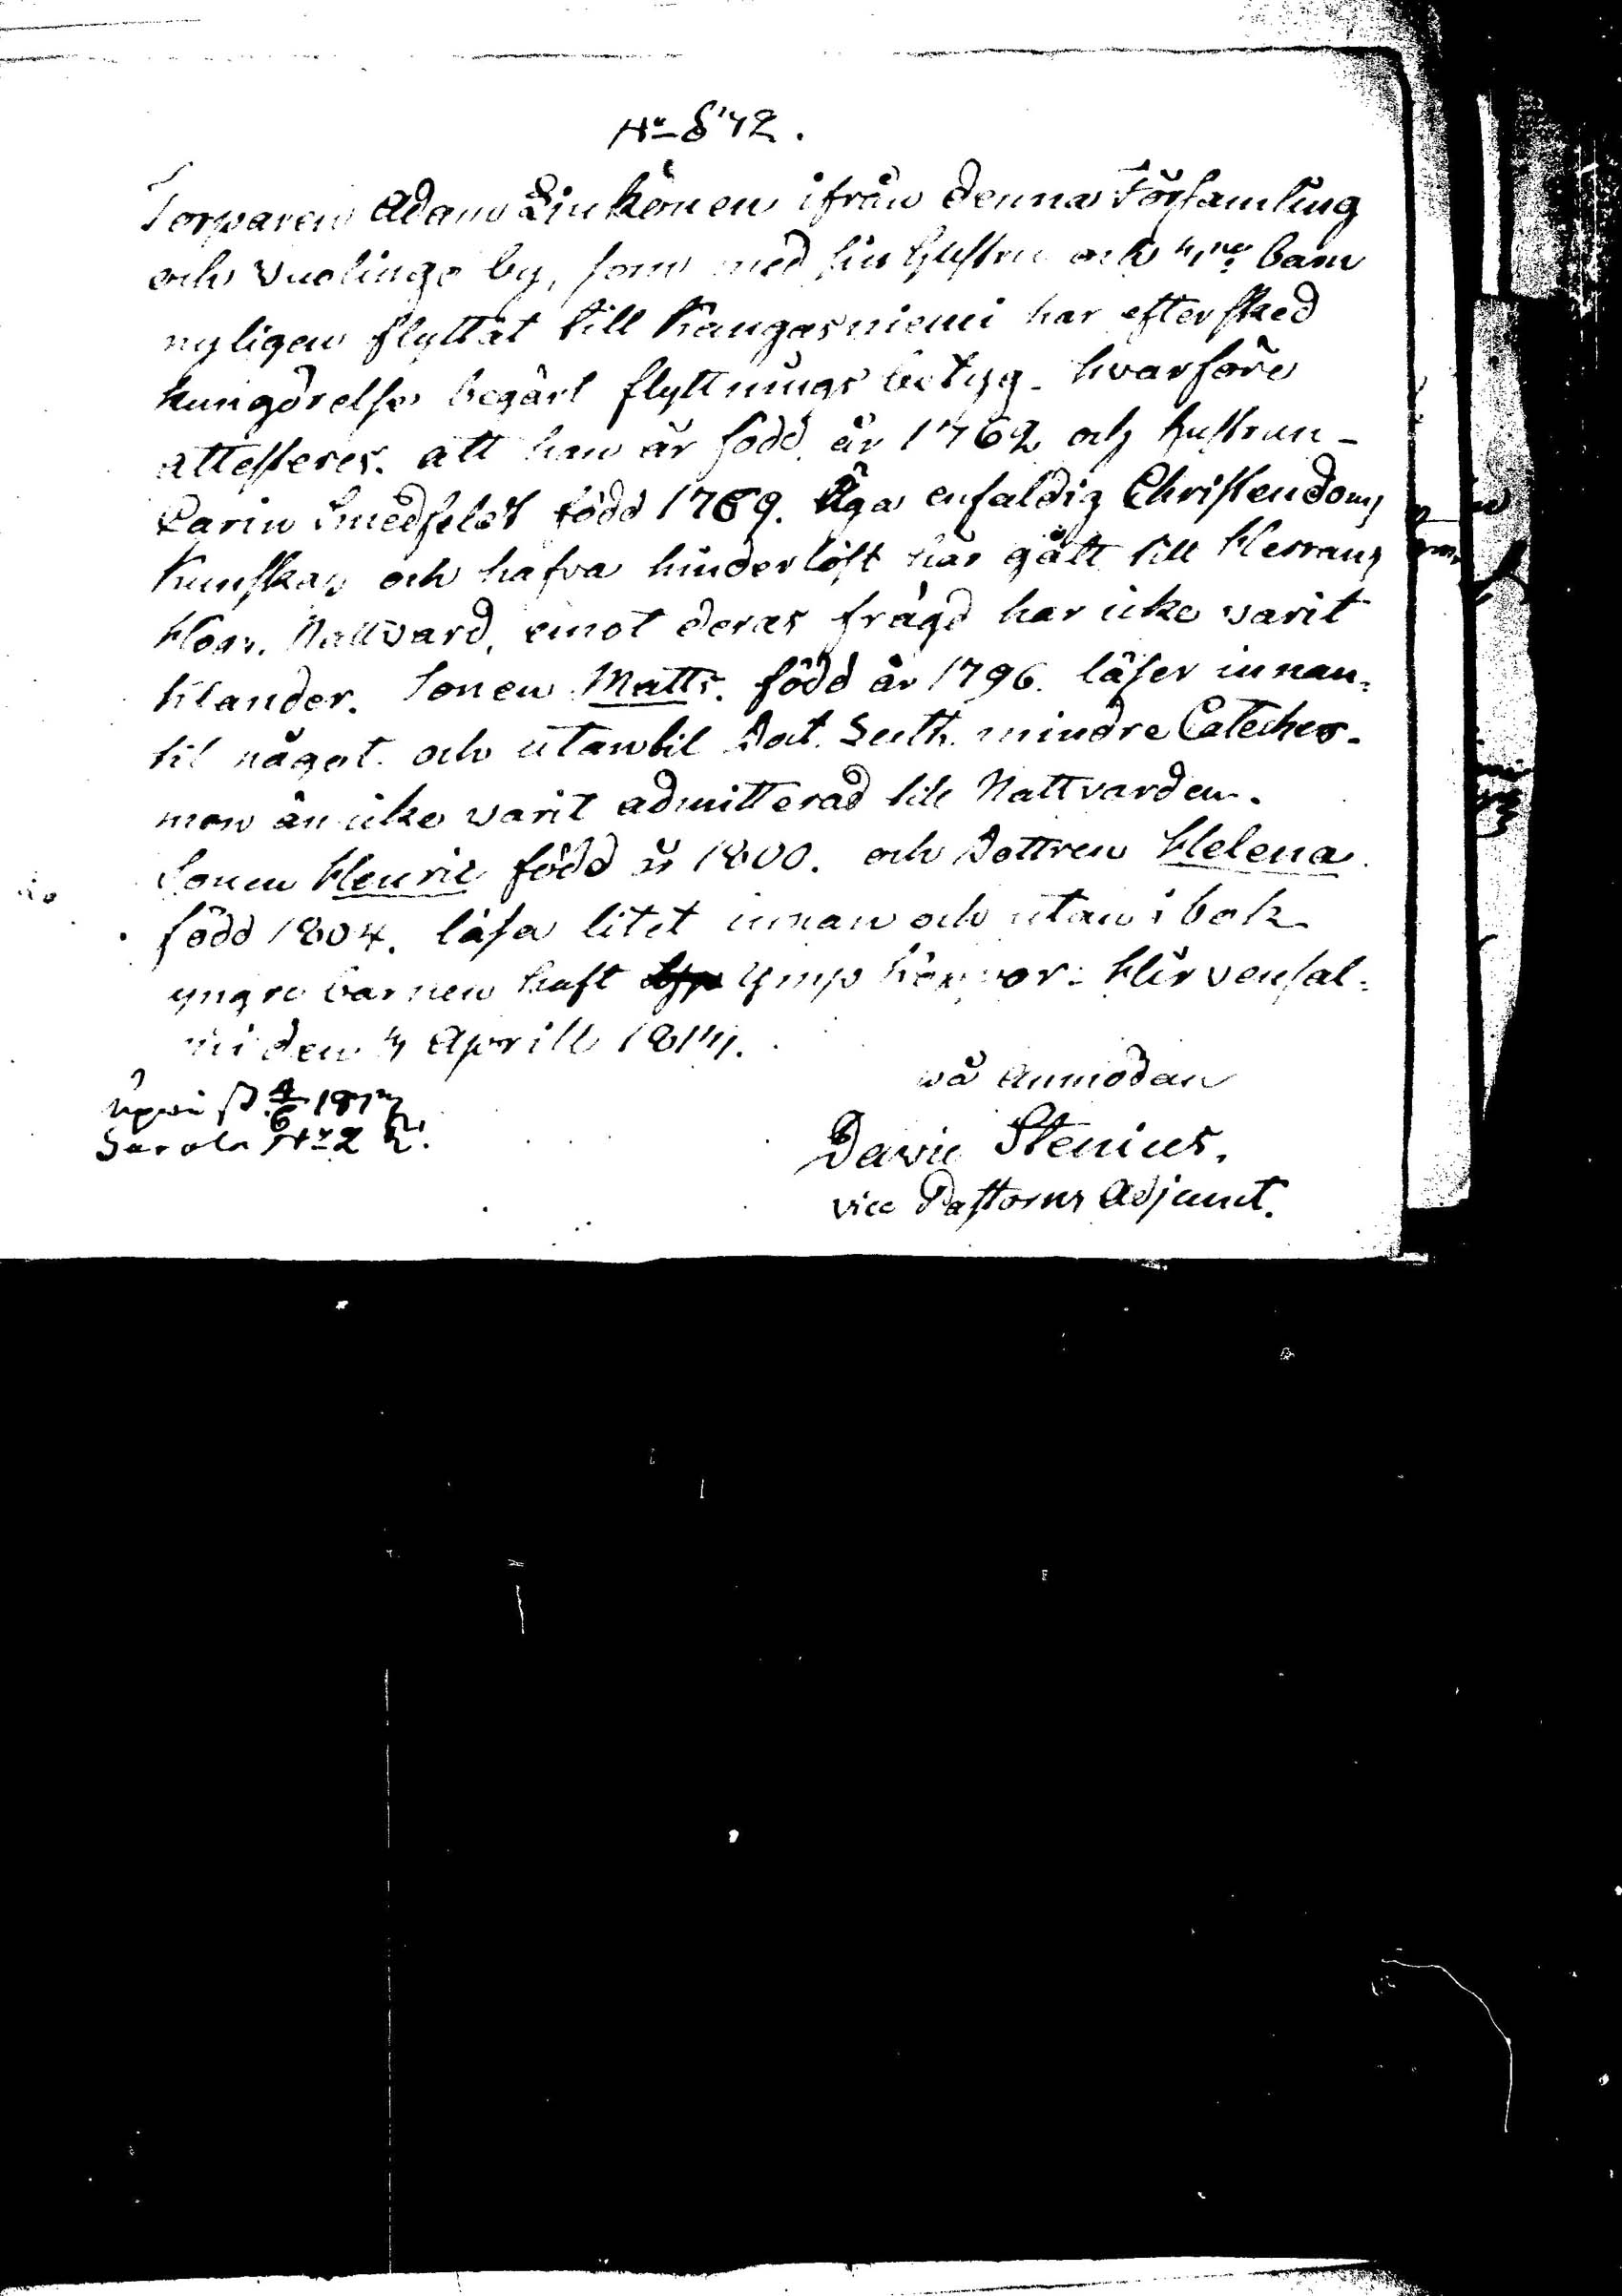 No 842.
Torparen Adam Liukonen ifrån denna Församling
och Vuolinga by, som med sin hustru och 4ra barn
nyligen flyttat till Kangasniemi har efter sked
kungörelse begärt flyttnings betyg. hvarföre
attesteres. att han är född år 1762 och hustrun
Carin Smedfelt född 1769. Äga enfaldig Christendoms
kunskap och hafva hinderlöst här gått till Herrans
Högv. Nattvard, emot deras frägd har icke varit
klander. Sonen Matts. född år 1796. läser innan-
til något. och utantil Doct. Luth. mindre Cateches-
mon än icke varit admitterad till Nattvarden.
Sonen Henric född år 1800. och Dottren Helena.
född 1804. läsa litet innan och utan i bok
yngre barnen haft Ymp koppor. Hirvensal-
mi den 4 Aprill 1814.
på anmodan
Davic Stenius.
vice Pastorns Adjunct.
4/6 181
No 2